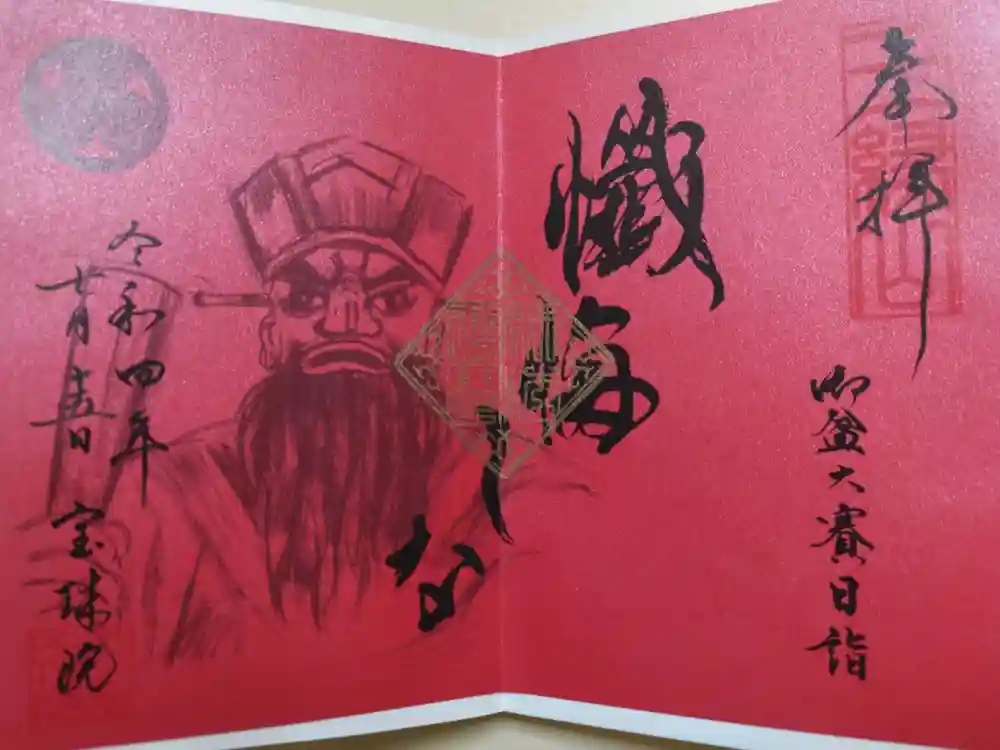 奉拝
三縁山
御盆大賽日詣
懺悔
しな
令和四年
七月十五日
宝珠院